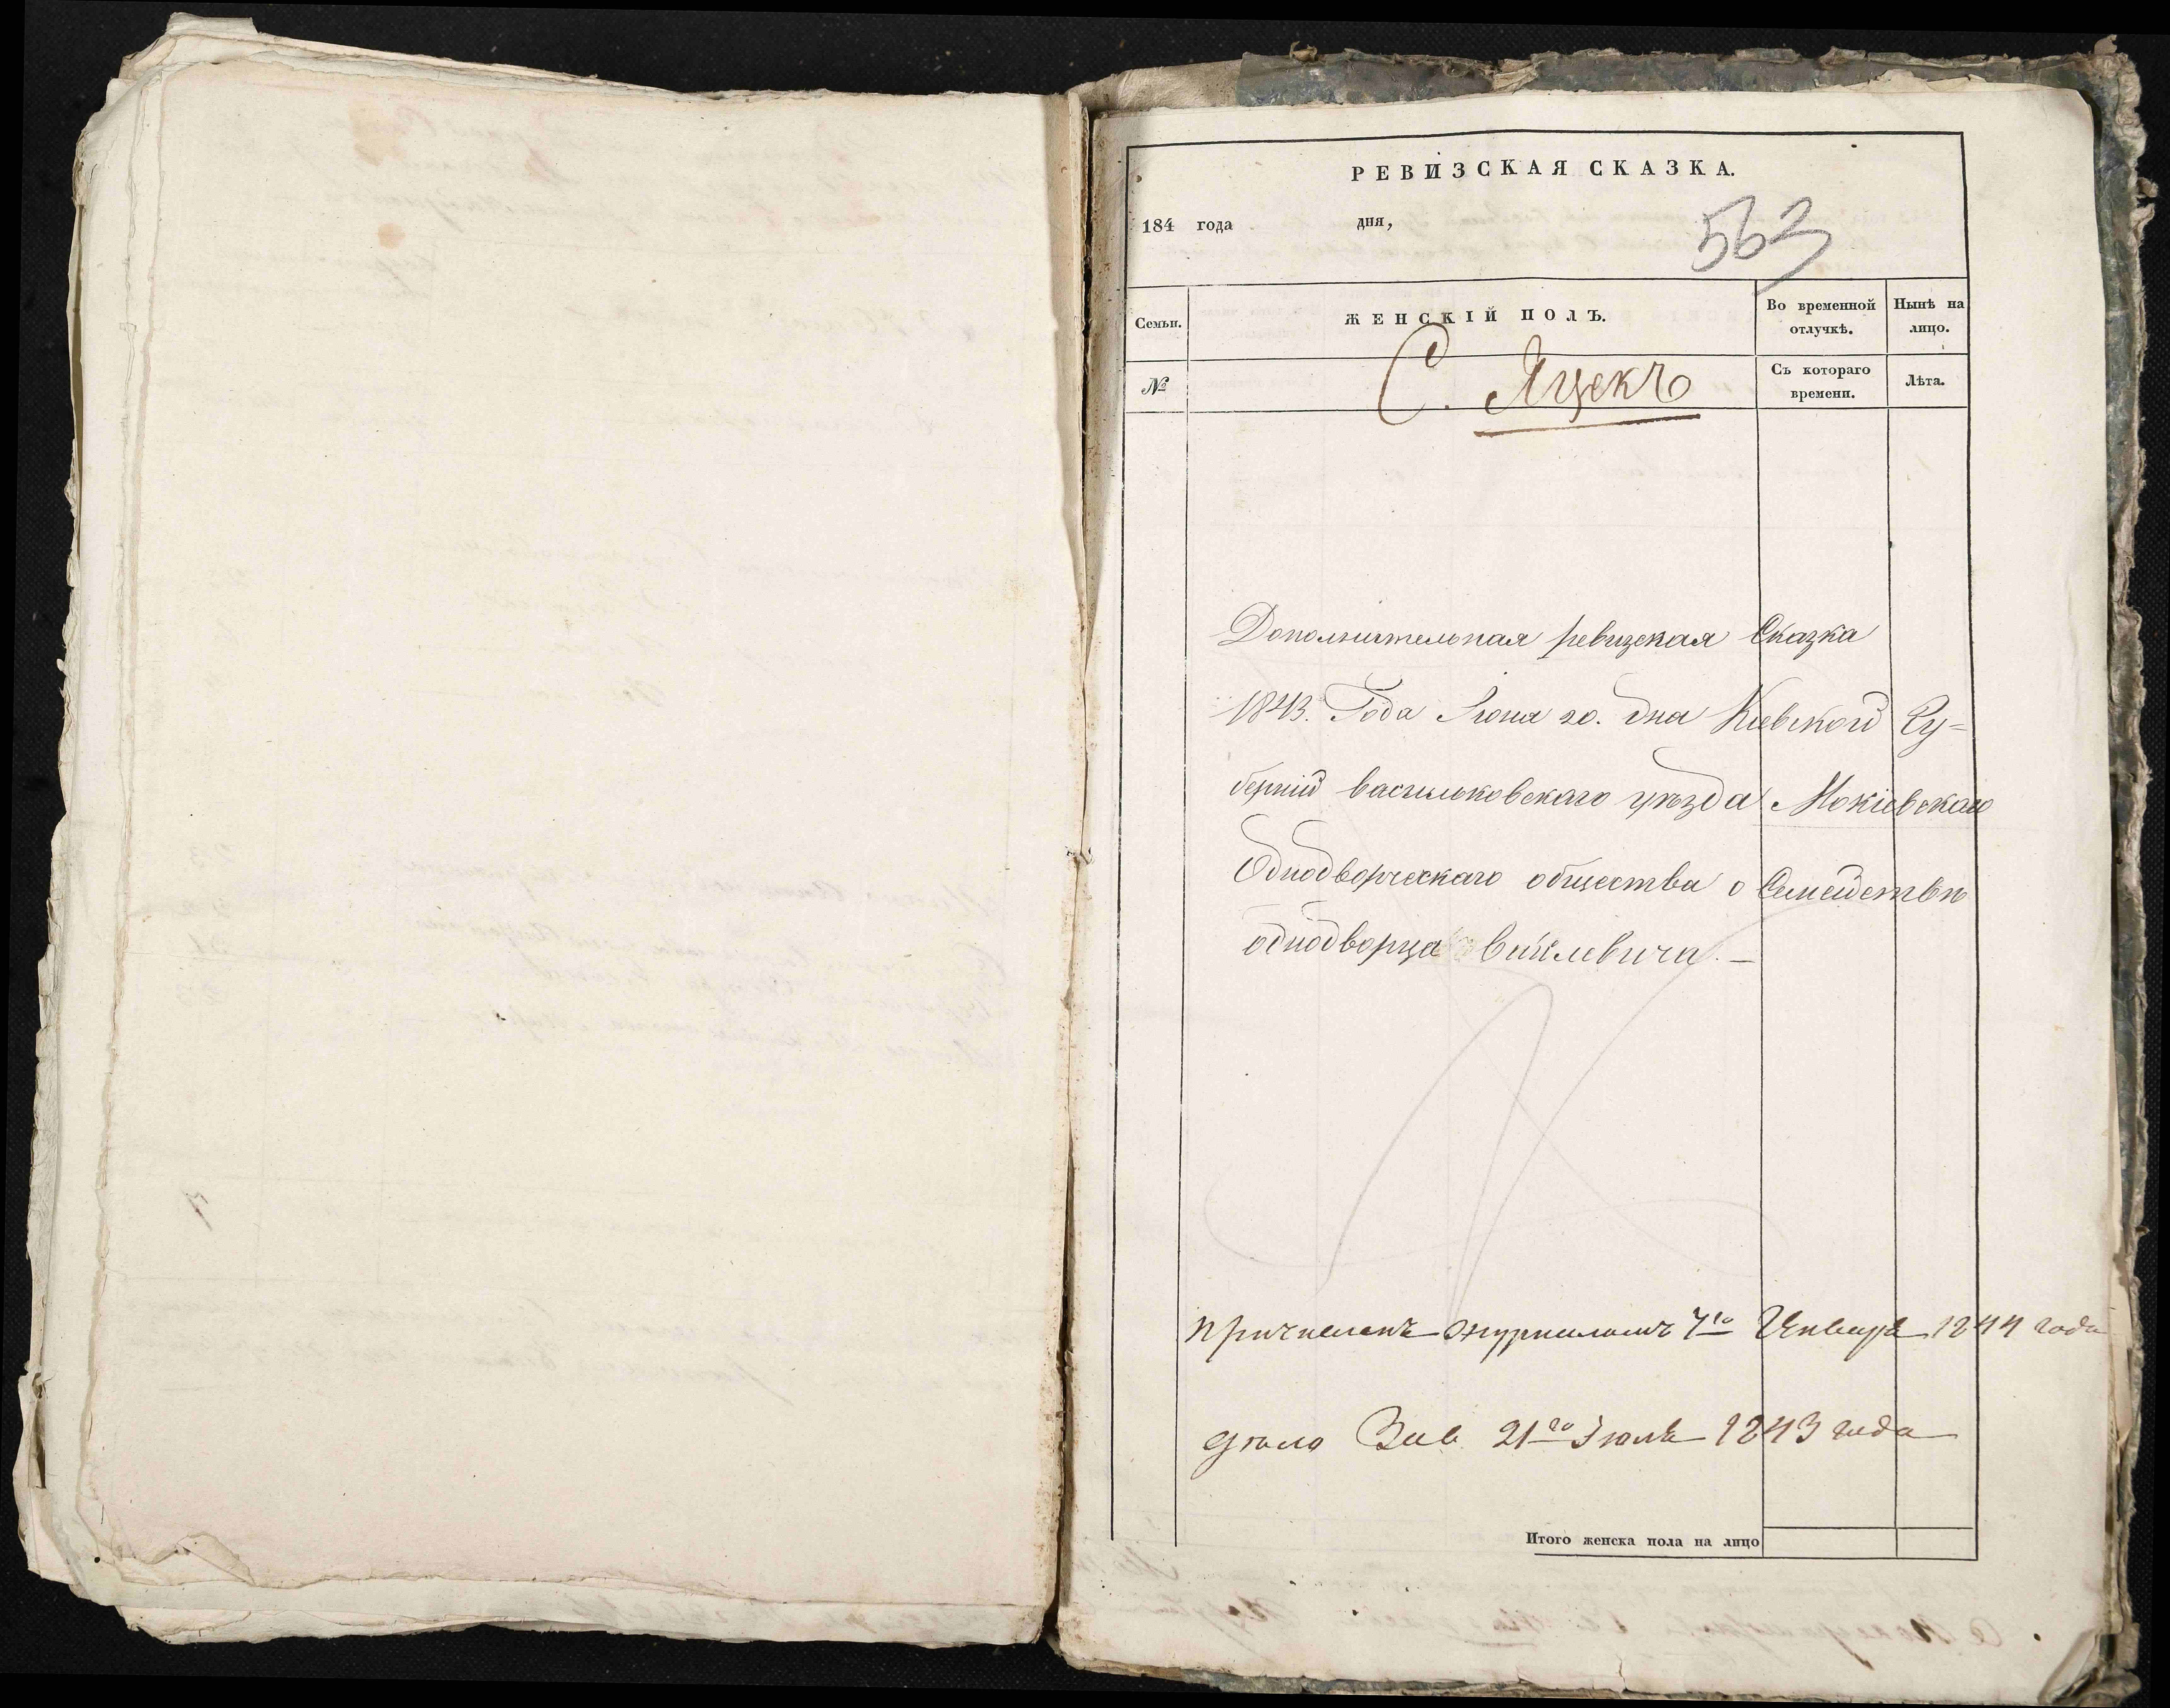 РЕВИЗСКАЯ СКАЗКА.
184 года дня,
563
Семьи.
ЖЕНСКІЙ ПОЛЪ.
Во временной отлучкѣ.
Нынѣ на лицо.
№
С. Яцекъ
Съ котораго времени.
Лѣта.
Дополнительная ревизская Сказка
1843. Года Іюня 20. дня Кіевской Гу=
берніи васильковскаго уѣзда Мокіевскаго
Однодворческаго общества о Семействѣ
однодворца
Причисленъ журналомъ 7го Января 1844 года
дѣло 21го Іюля 1843 года
Итого женска пола на лицо